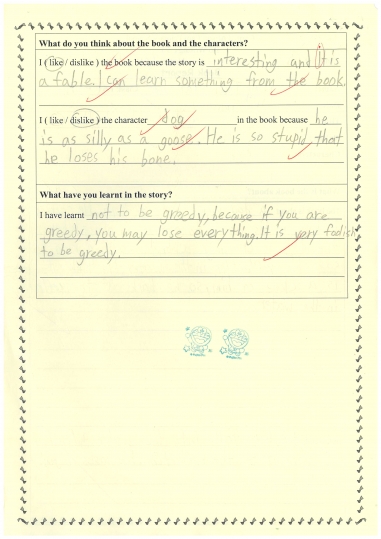 What do you think about the book and the characters?
I ( like / dislike ) the book because the story is interesting and It is
a fable. I can learn something from the book.
I ( like / dislike ) the character dog in the book because he
is as silly as a goose. He is so stupid that
he loses his bone.
What have you learnt in the story?
I have learnt not to be greedy, because if you are
greedy, you may lose everything. It is very foolish
to be greedy.